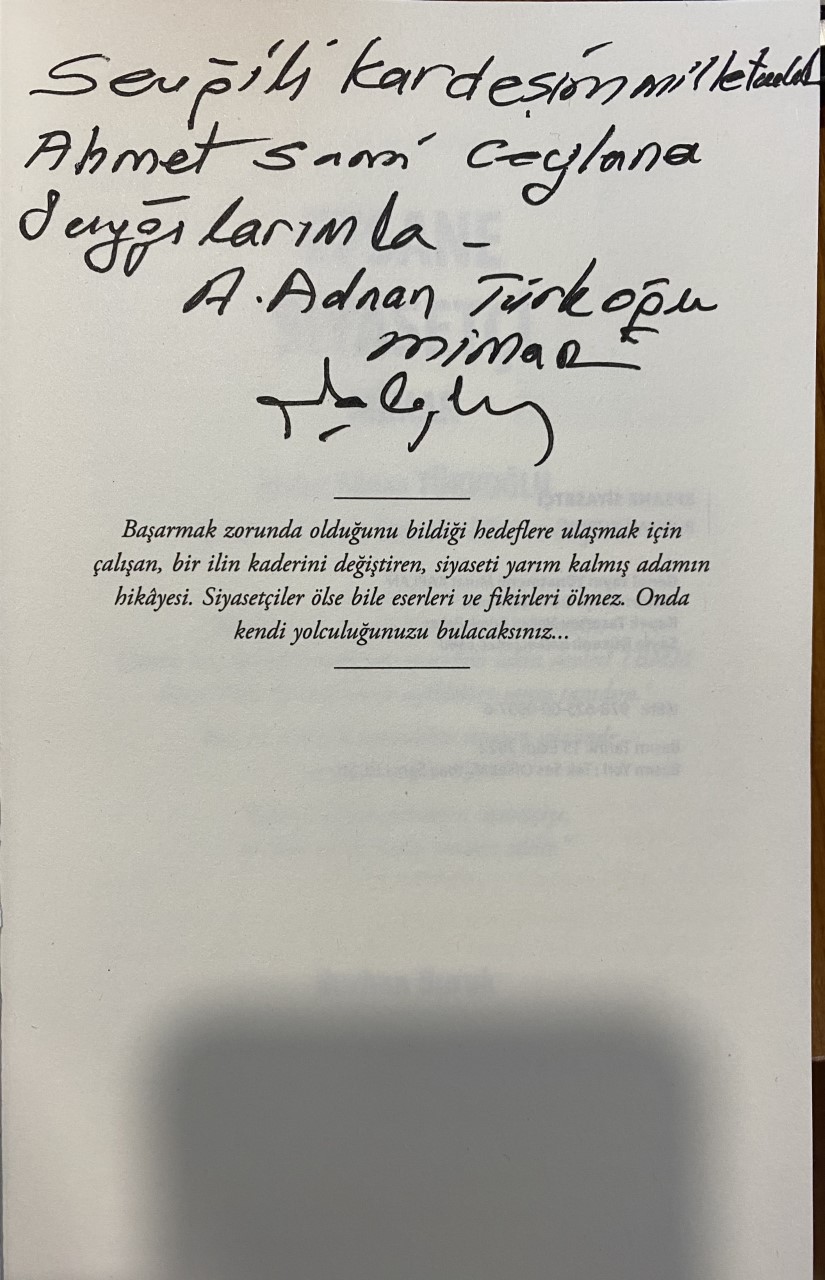 Sevgili Kardeşim
Ahmet Sami Ceylana
Saygılarımla -
A. Adnan Türkoğlu
mimar
Başarmak zorunda olduğunu bildiği hedeflere ulaşmak için
çalışan, bir ilin kaderini değiştiren, siyaseti yarım kalmış adamın
hikâyesi. Siyasetçiler ölse bile eserleri ve fikirleri ölmez. Onda
kendi yolculuğunuzu bulacaksınız...